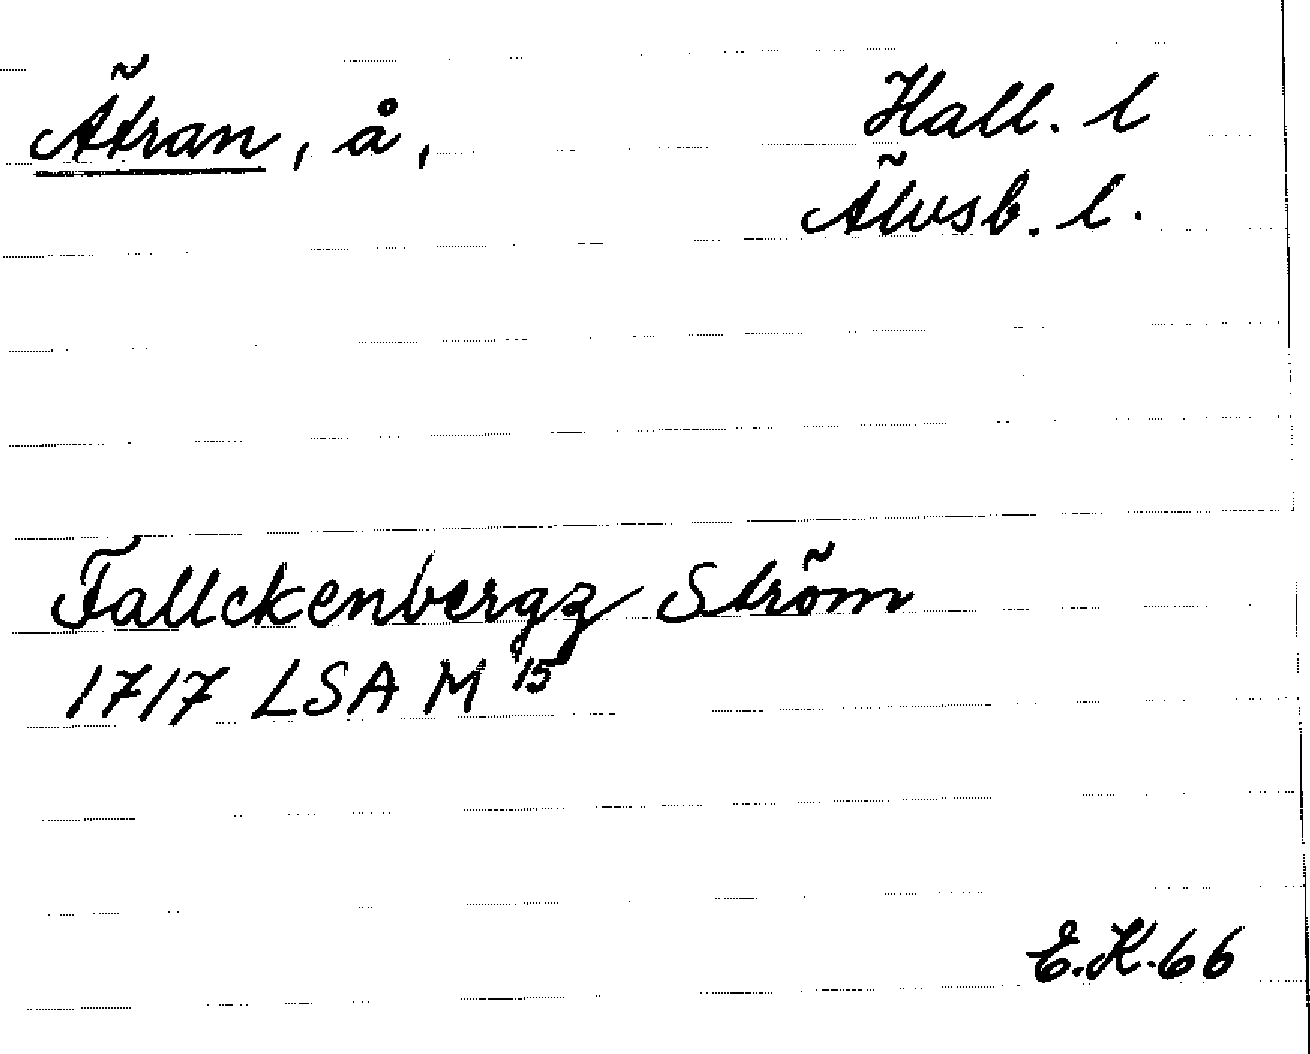 Ätran, å, Hall. l
Älvsb. l.
Fallckenbergz Ström
1717 LSA M 15
E.K.66